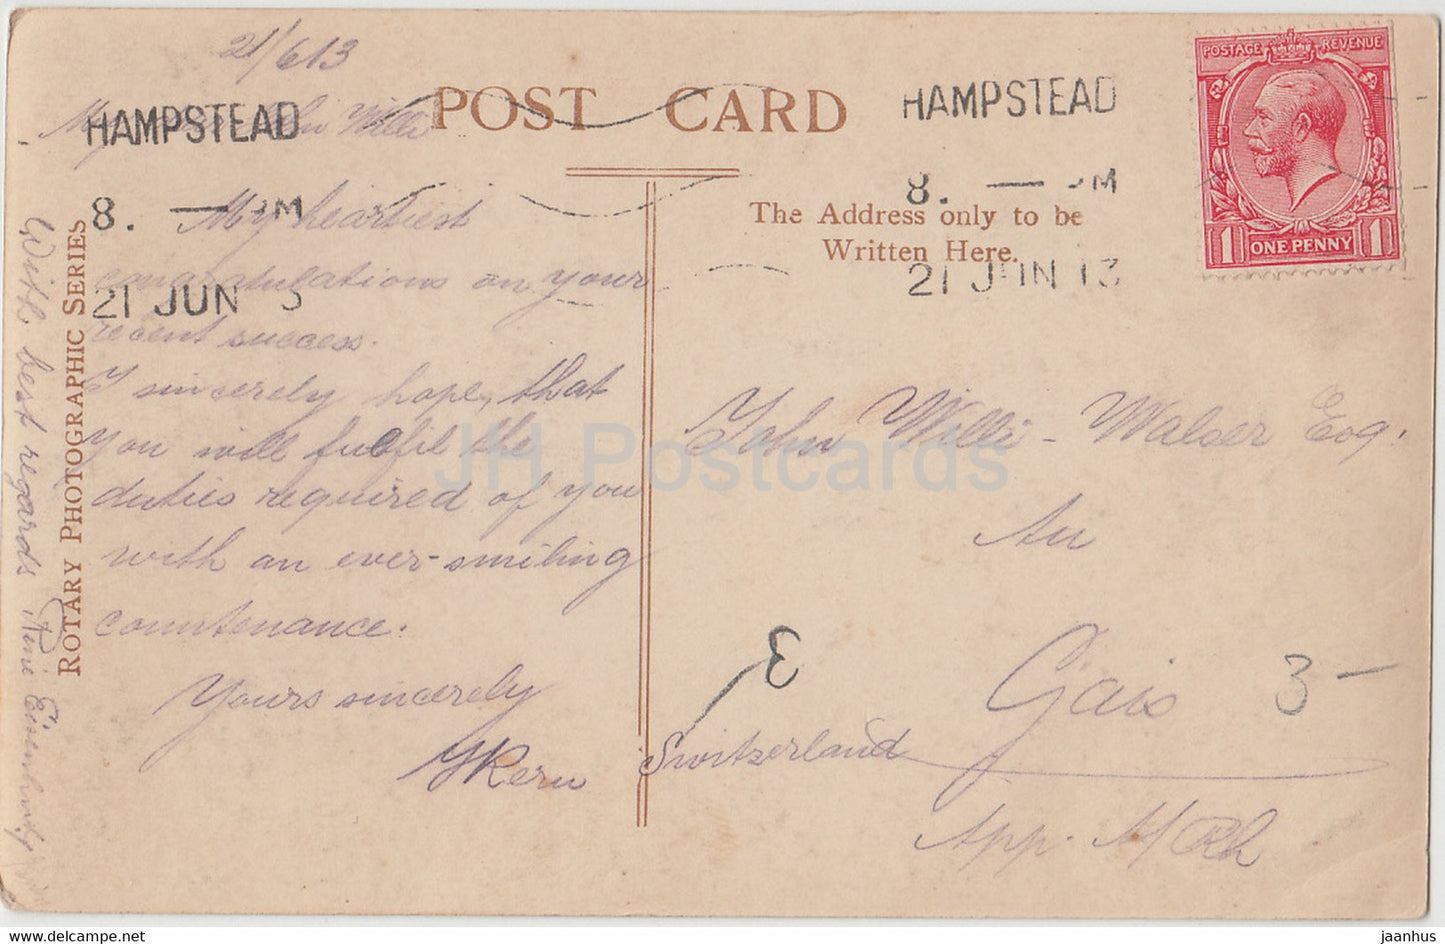 21/6 13
My John Willi
My heartiest
congratulations on your
recent success.
I sincerely hope, that
you will fulfil the
duties required of you
with an ever-smiling
countenance.
Yours sincerely
Kern
With best regards
ROTARY PHOTOGRAPHIC SERIES
POST CARD
The Address only to be
Written Here.
HAMPSTEAD
8. PM
21 JUN 3
HAMPSTEAD
8. PM
21 JUN 13
POSTAGE REVENUE
1 ONE PENNY 1
John Willi-Walser Esq.
Au
Gais
Switzerland
App. A/Rh
E
3 -
JH Postcards
jaanhus www.delcampe.net